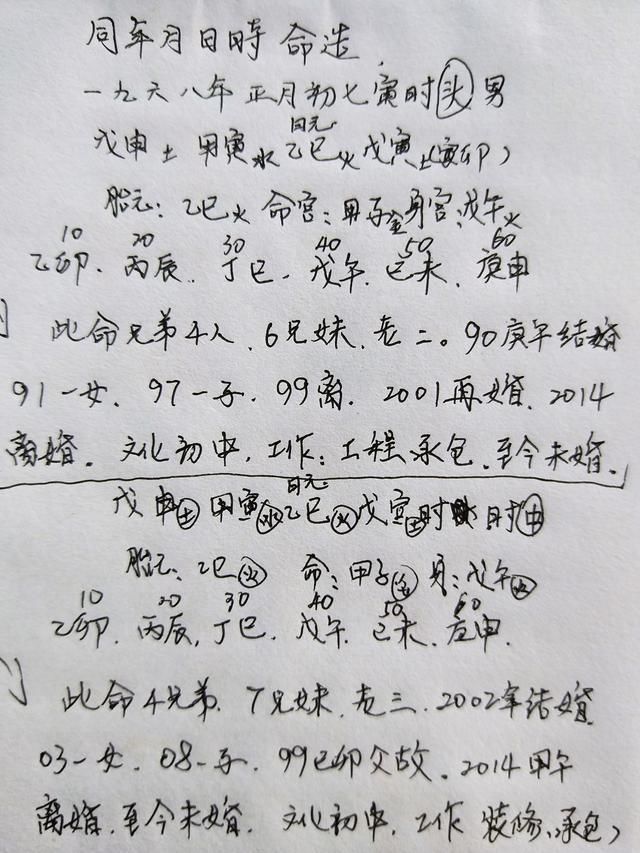 同年月日時 命造
一九六八年 正月初七寅时头 男
日元
戊申土 甲寅水 乙巳火 戊寅土(寅卯)
胎元:乙巳火 命宫:甲子金 身宫:戊午火
10 20 30 40 50 60
乙卯、丙辰、丁巳、戊午、己未、庚申
此命兄弟4人、6兄妹、老二。90庚午结婚
91一女、97一子、99离、2001再婚、2014
离婚。文化初中,工作:工程承包、至今未婚。
日元
戊申土 甲寅水 乙巳火 戊寅土时 时中
胎元:乙巳火 命:甲子金 身:戊午火
10 20 30 40 50 60
乙卯、丙辰、丁巳、戊午、己未、庚申、
此命4兄弟、7兄妹、老三、2002年结婚
03一女、08一子、99己卯父故、2014甲午
离婚、至今未婚、文化初中、工作 装修、承包)